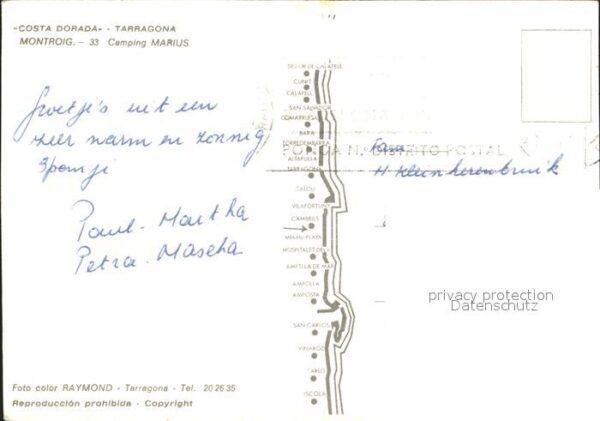 «COSTA DORADA» - TARRAGONA
MONTROIG. - 33 Camping MARIUS
Groetje's uit een
zeer warm en zonnig
Spanje
Paul - Martha
Petra - Mascha
Fam
H Kleinherenbrink
SEGUR DE CALAFELL
CUNIT
CALAFELL
SAN SALVADOR
COMARRUGA
BARA
TORREDEMBARRA
ALTAFULLA
TARRAGONA
SALOU
VILAFORTUNY
CAMBRILS
MIAMI-PLAYA
HOSPITALET DEL
AMETLLA DE MAR
AMPOLLA
AMPOSTA
SAN CARLOS
VINAROZ
CARLO
ISCOLA
DISTRITO POSTAL
privacy protection
Datenschutz
Foto color RAYMOND - Tarragona - Tel. 20 26 35
Reproducción prohibida - Copyright